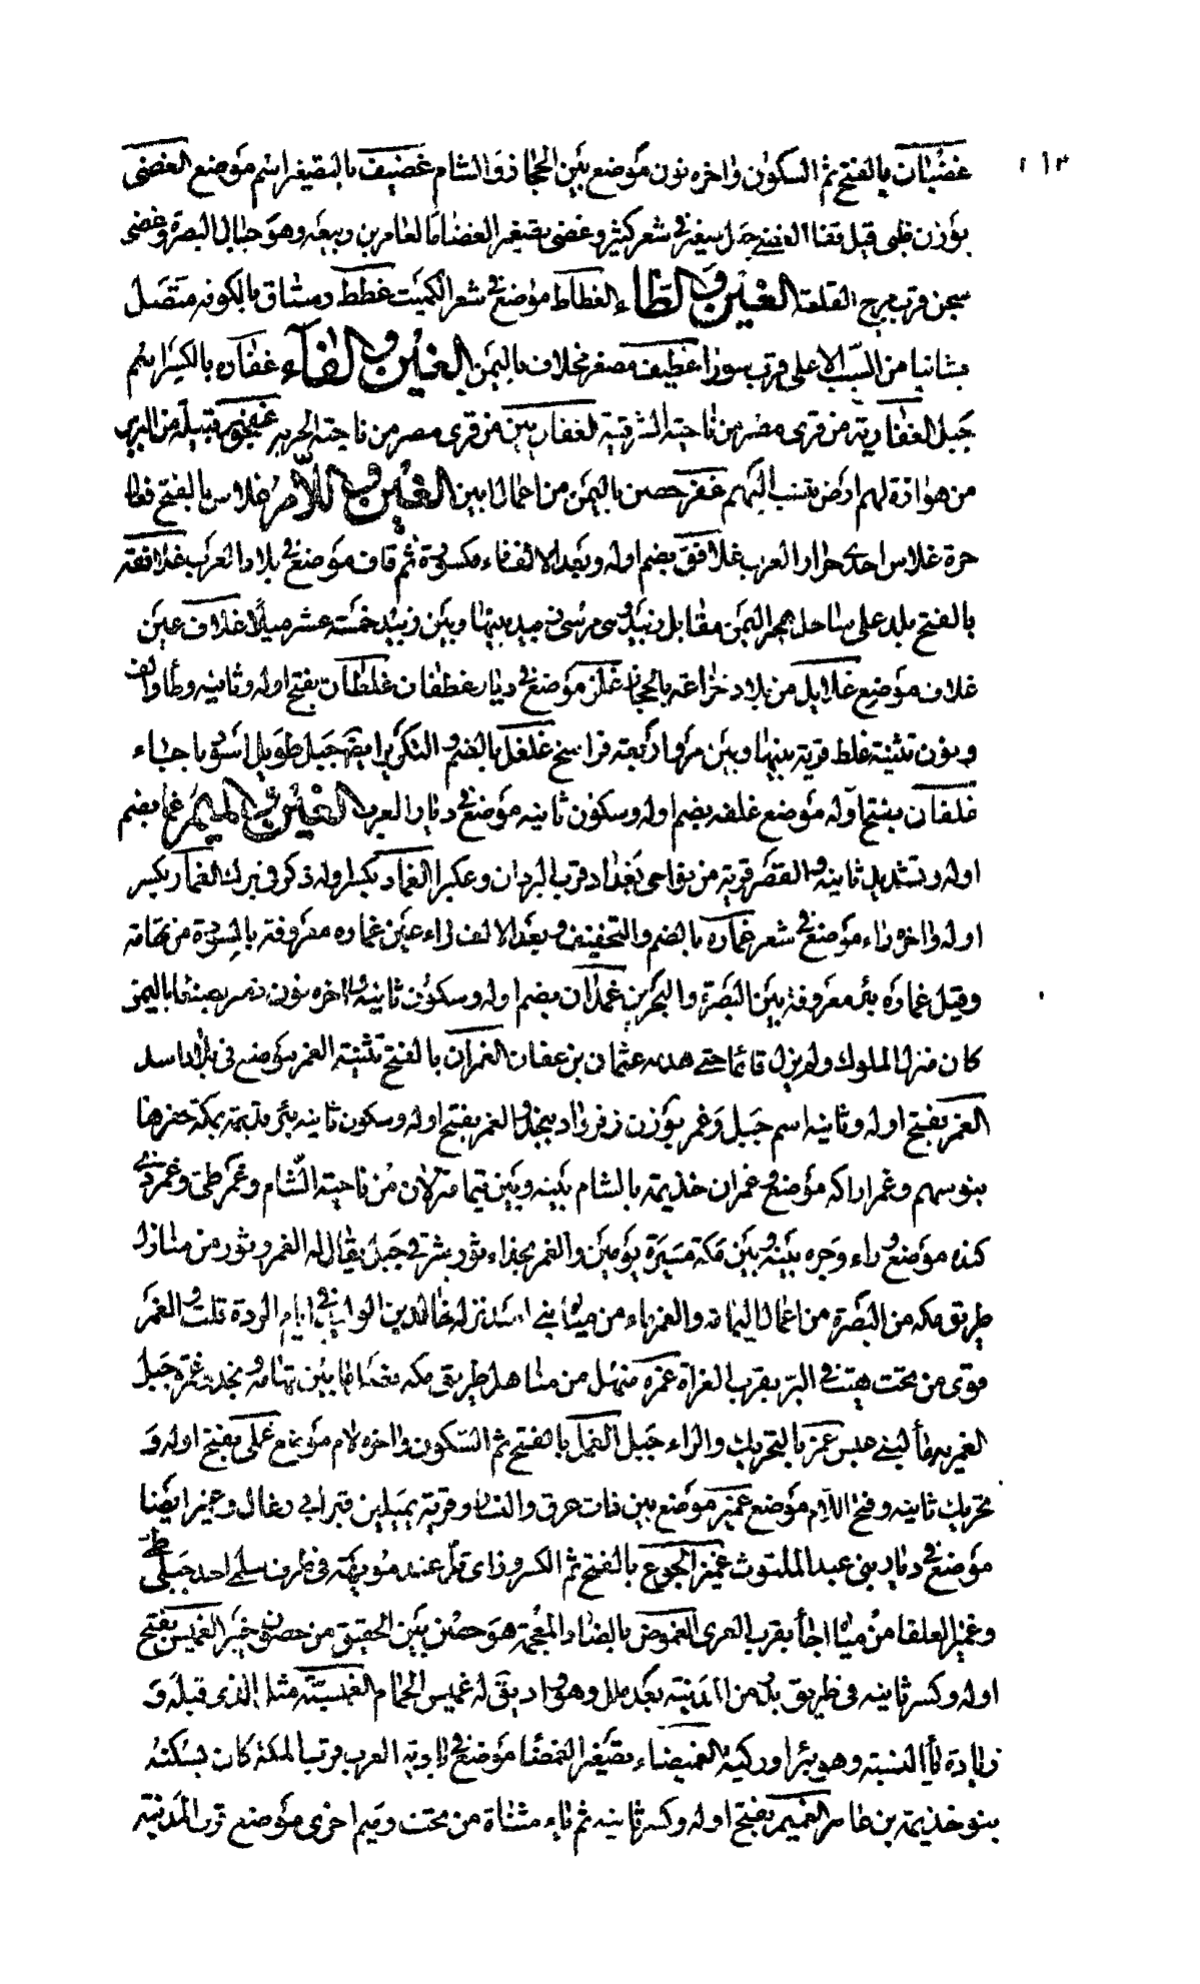 ١١٣
غضبان بالفتح ثم السكون واخره نون موضع بين الحجاز والشام غضيف بالتصغير اسم موضع الغضى
بوزن ظبى قيل قفا الغضى جبل صغير فى شعر كثير وغضى تصغير الغضا ماء لعامر بن ربيعه وهو جبال البصرة وغضى
سجن قرب برج القلعة الغين والطاء الغطاط موضع فى شعر الكميت غطط رستاق بالكوفه متصل
بشانيا من السيب الاعلى قرب سورا غطيف مصغر مخلاف باليمن الغين والفاء غفاره بالكسر اسم
جبل الغفارية من قرى مصر من ناحية الشرقية الغفاريين من قرى مصر من ناحية الجزيرة قبيلة من البربر
من هوارة لهم ارض تنسب اليهم غفر حصن باليمن من اعمال ابين الغين واللام غلاس بالفتح فعال
حرة غلاس احدى حرار العرب غلافق بضم اوله وبعد الالف فاء مكسورة ثم قاف موضع فى بلاد العرب غلافقة
بالفتح بلد على ساحل بحر اليمن مقابل زبيد وهى مرسى زبيد بينها وبين زبيد خمسة عشر ميلا غلاف عين
غلاف موضع غلايل من بلاد خزاعة بالحجاز غلز موضع فى ديار غطفان غلطان بفتح اوله وثانيه وطا والف
ونون تثنية غلط قرية بينها وبين مرو اربعة فراسخ غلغل بالضم والتكرير ايضا جبل طويل اسود باجاء
غلفان بفتح اوله موضع غلفه بضم اوله وسكون ثانيه موضع فى ديار العرب الغين والميم غما بضم
اوله وتشديد ثانيه والقصر قرية من نواحى بغداد قرب البردان وعكبرا الغماد بكسر اوله ذكر فى برك الغمار بكسر
اوله واخره راء موضع فى شعر غمارة بالضم والتخفيف وبعد الالف راء عين غماره معروفة بالسودة من تهامة
وقيل غماره بئر معروفة بين البصرة والبحرين غمدان بضم اوله وسكون ثانيه واخره نون قصر بصنعا باليمن
كان منزل الملوك ولم يزل قائما حتى هدمه عثمان بن عفان الغمران بالفتح تثنية الغمر موضع فى بلاد اسد
الغمر بفتح اوله وثانيه اسم جبل وغمر بوزن زفر واد بنجد والغمر بفتح اوله وسكون ثانيه بئر قديمة بمكة حفرها
بنو سهم وغمر اراكه موضع وغمران خذيمة بالشام بينه وبين تيما منزلان من ناحية الشام وغمر طى وغمر ذى
كنده موضع وراء وجره بينه وبين مكة مسيرة يومين والغمر بحذاء ثوز شرقى جبل يقال له الغمر وثوز من منازل
طريق مكه من البصرة من اعمال اليمامه والغمر ماء من مياه بنى اسد نزله خالد بن الوليد فى ايام الردة قلت والغمر
قرى من تحت هيت فى البر بقرب الفراة غمره منهل من مناهل طريق مكه فصل ما بين تهامه ونجد وغمرة جبل
الغمرية ماء لبنى عبس غمز بالتحريك والزاء جبل الغمل بالفتح ثم السكون واخره لام موضع غملى بفتح اوله و
تحريك ثانيه وفتح اللام موضع غمير موضع بين ذات عرق والبستان وقرية بميلين قبر ابى رغال وغمير ايضا
موضع فى ديار بنى غمير الجوع بالفتح ثم الكسر وزاى تل عند مويهة فى طرف سلمى احد جبلى طى
وغمير الصلعا من مياه اجأ بقرب الغرى الغموض بالضاد المعجمة هو حصن بنى الحقيق من حصون خيبر الغميس بفتح
اوله وكسر ثانيه فى طريق بدر من المدينة بعد ملل وهو واد يق له غميس الحمام الغميسة مثل الذى قبله و
زيادة ياء النسبة وهو بئر او ركية الغميضاء تصغير الغمضا موضع فى بادية العرب قرب المكة كان يسكنه
بنو خذيمة بن عامر الغميم بفتح اوله وكسر ثانيه ثم ياء مثناة من تحت وميم اخرى موضع قرب المدينة